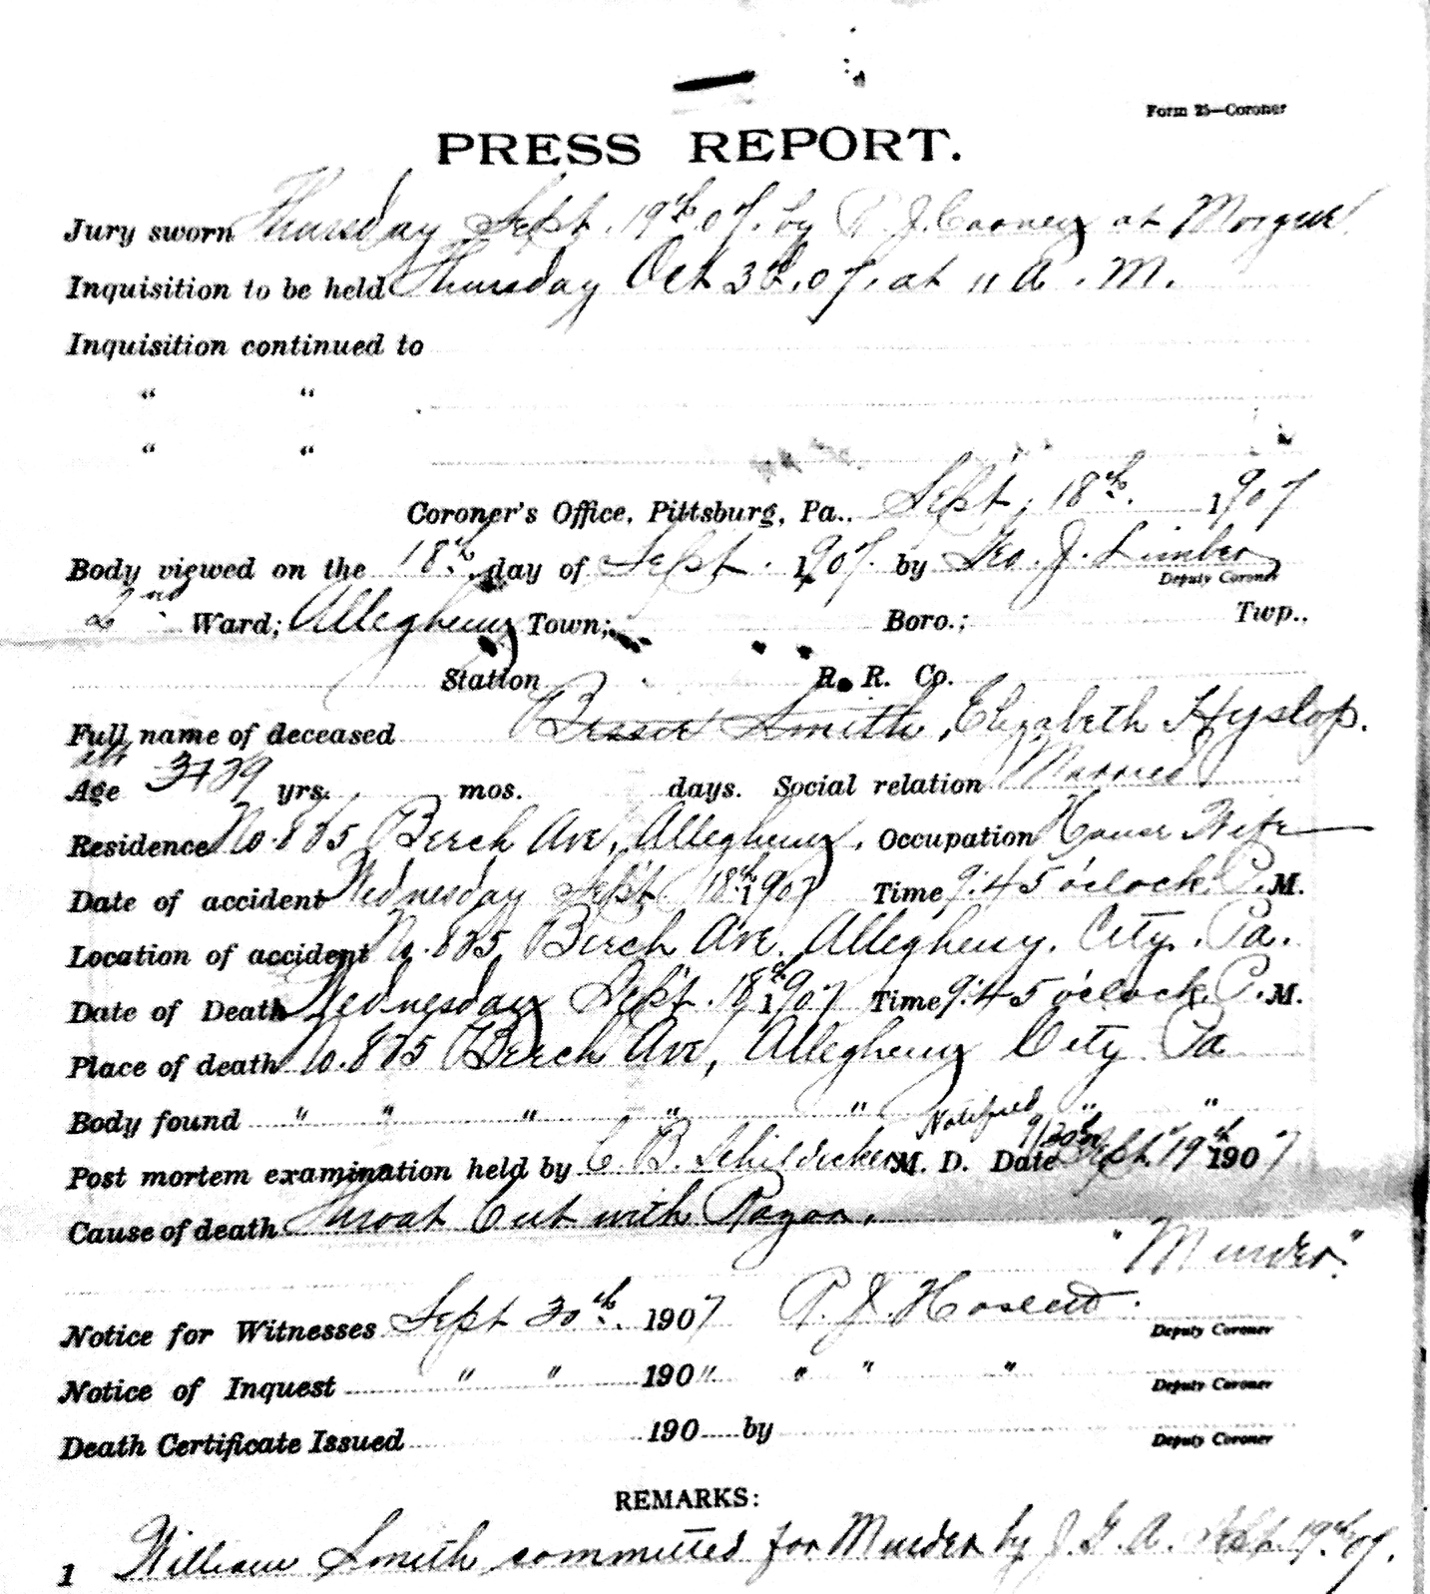 Form 25—Coroner
PRESS REPORT.
Jury sworn Thursday Sept. 19th. 07. by P. J. Cooney at Morgue
Inquisition to be held Thursday Oct 3d, 07, at 11 A. M.
Inquisition continued to
" "
" "
Coroner's Office, Pittsburg, Pa., Sept, 18th. 1907
Body viewed on the 18th. day of Sept. 1907. by Geo. J. Limber
Deputy Coroner
2nd Ward; Allegheny Town; Boro.; Twp.,
Station R. R. Co.
Full name of deceased Bessie Smith, Elizabeth Hyslop.
Age abt 39 yrs. mos. days. Social relation Married
Residence No. 875 Berch Ave, Allegheny, Occupation House Wife
Date of accident Wednesday Sept. 18th 1907 Time 9:45 o'clock P. M.
Location of accident No. 875 Berch Ave. Allegheny. City. Pa.
Date of Death Wednesday Sept. 18th 1907 Time 9:45 o'clock P. M.
Place of death No. 875 Berch Ave, Allegheny City Pa
Body found " " " " " " "
Notified
Post mortem examination held by C. B. M. D. Date Sept. 19th 1907
Cause of death Throat Cut with Razor.
"Murder."
Notice for Witnesses Sept 30th. 1907 P. J.
Deputy Coroner
Notice of Inquest " " 190" " " "
Deputy Coroner
Death Certificate Issued 190 by
Deputy Coroner
REMARKS:
1 William Smith committed for Murder by J. G. A. Sept. 19th 07.